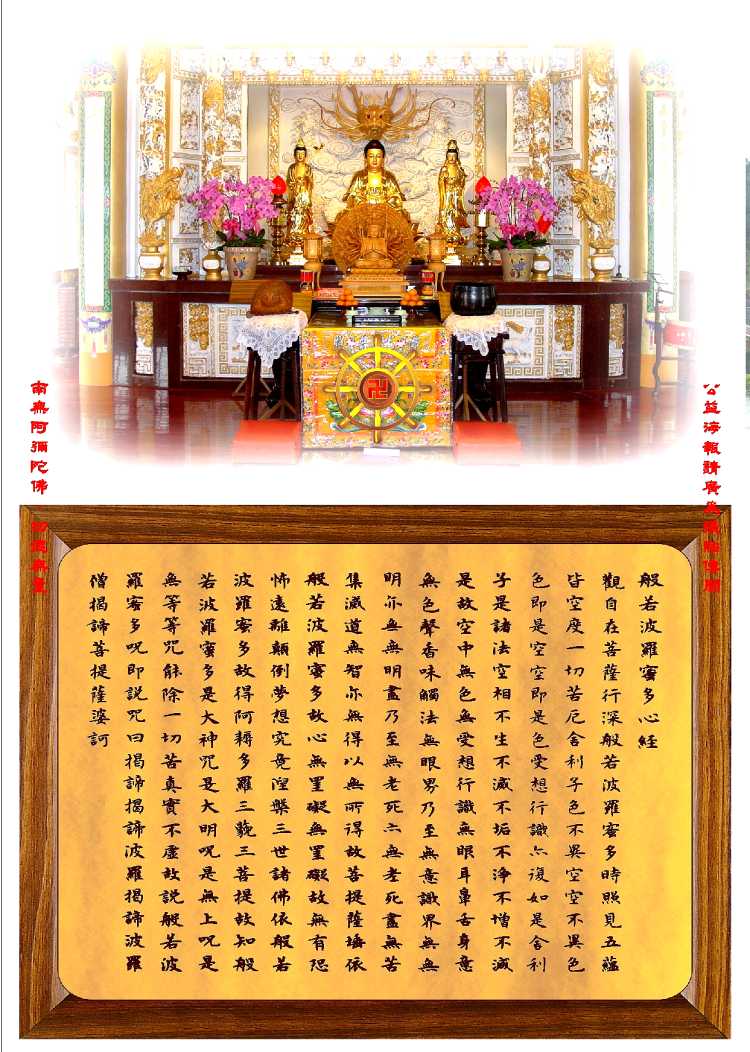 公益海報請廣為張貼傳閱
南無阿彌陀佛 功德無量
般若波羅蜜多心経
觀自在菩薩行深般若波羅蜜多時照見五蘊
皆空度一切苦厄舍利子色不異空空不異色
色即是空空即是色受想行識亦復如是舍利
子是諸法空相不生不滅不垢不淨不增不減
是故空中無色無受想行識無眼耳鼻舌身意
無色聲香味觸法無眼界乃至無意識界無無
明亦無無明盡乃至無老死亦無老死盡無苦
集滅道無智亦無得以無所得故菩提薩埵依
般若波羅蜜多故心無罣礙無罣礙故無有恐
怖遠離顛倒夢想究竟涅槃三世諸佛依般若
波羅蜜多故得阿耨多羅三藐三菩提故知般
若波羅蜜多是大神咒是大明咒是無上咒是
無等等咒能除一切苦真實不虛故説般若波
羅蜜多咒即説咒曰揭諦揭諦波羅揭諦波羅
僧揭諦菩提薩婆訶